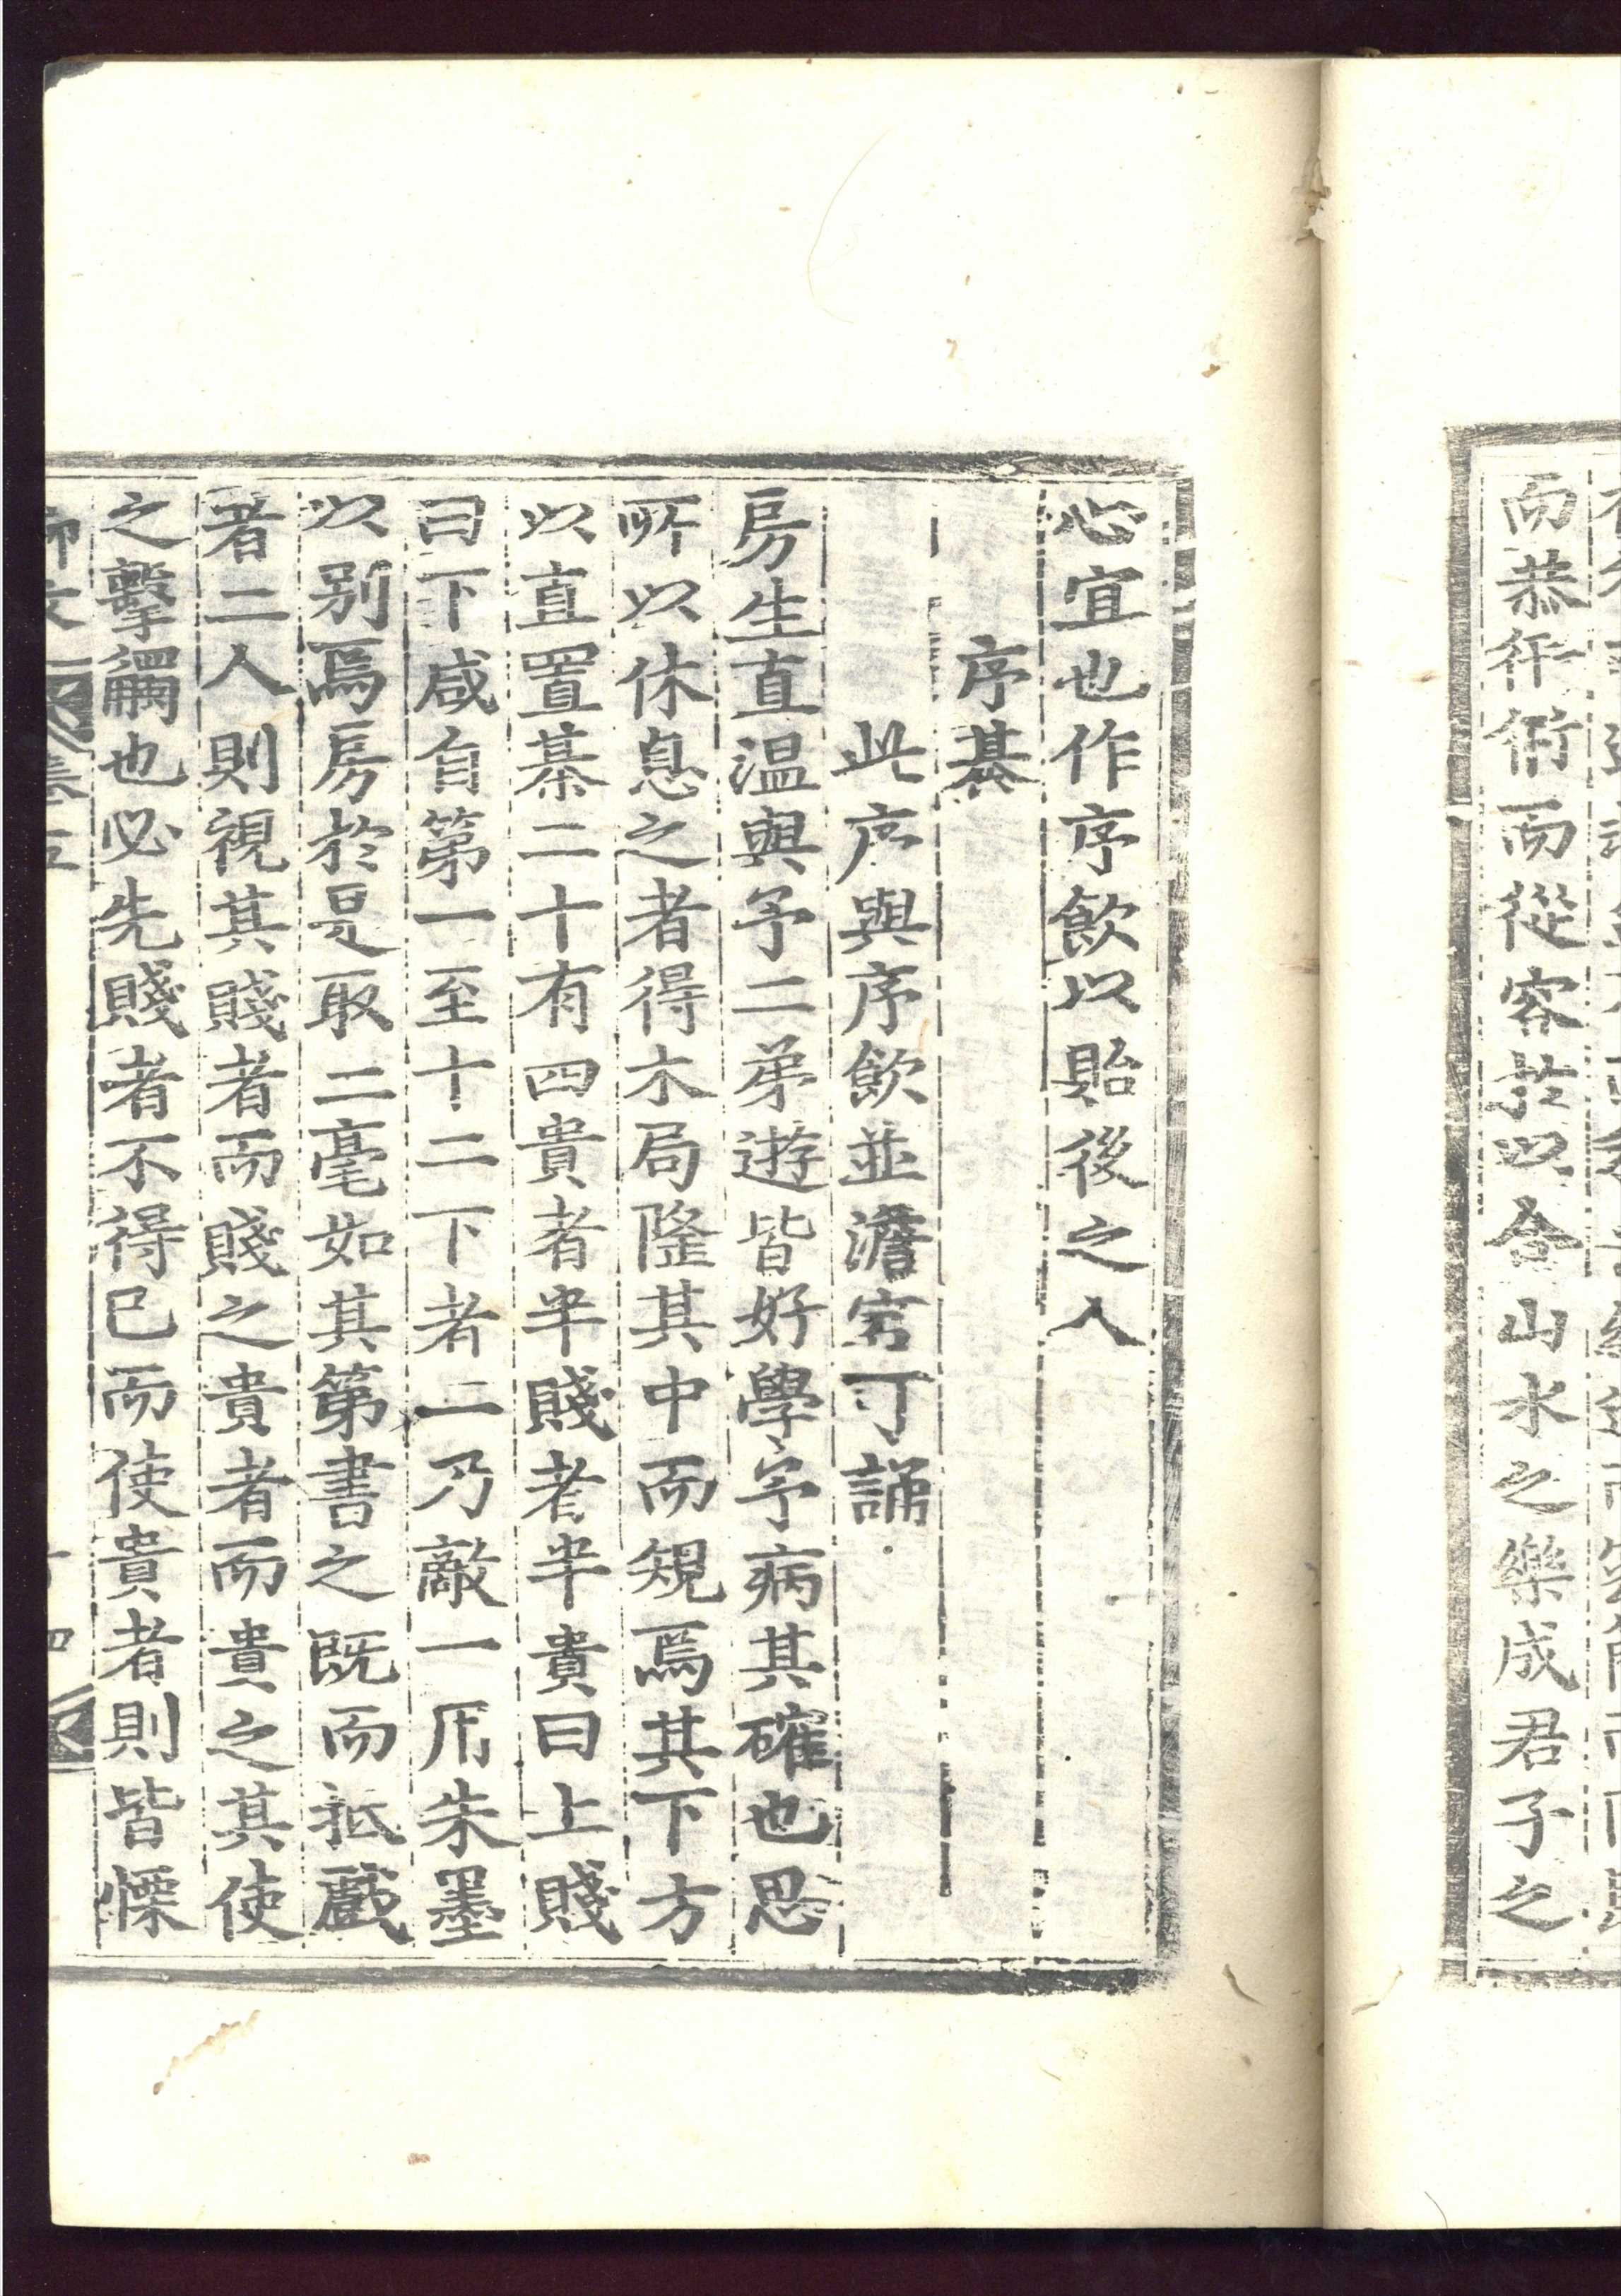 而恭衎衎而從容於以合山水之樂成君子之
心宜也作序飮以貽後之人
序棊
此序與序飮並澹宕可誦
房生直温與予二弟遊皆好學予病其確也思
所以休息之者得木局隆其中而規焉其下方
以直置棊二十有四貴者半賤者半貴曰上賤
曰下咸自第一至十二下者二乃敵一用朱墨
以别焉房於是取二毫如其第書之既而抵戲
者二人則視其賤者而賤之貴者而貴之其使
之擊觸也必先賤者不得已而使貴者則皆慄